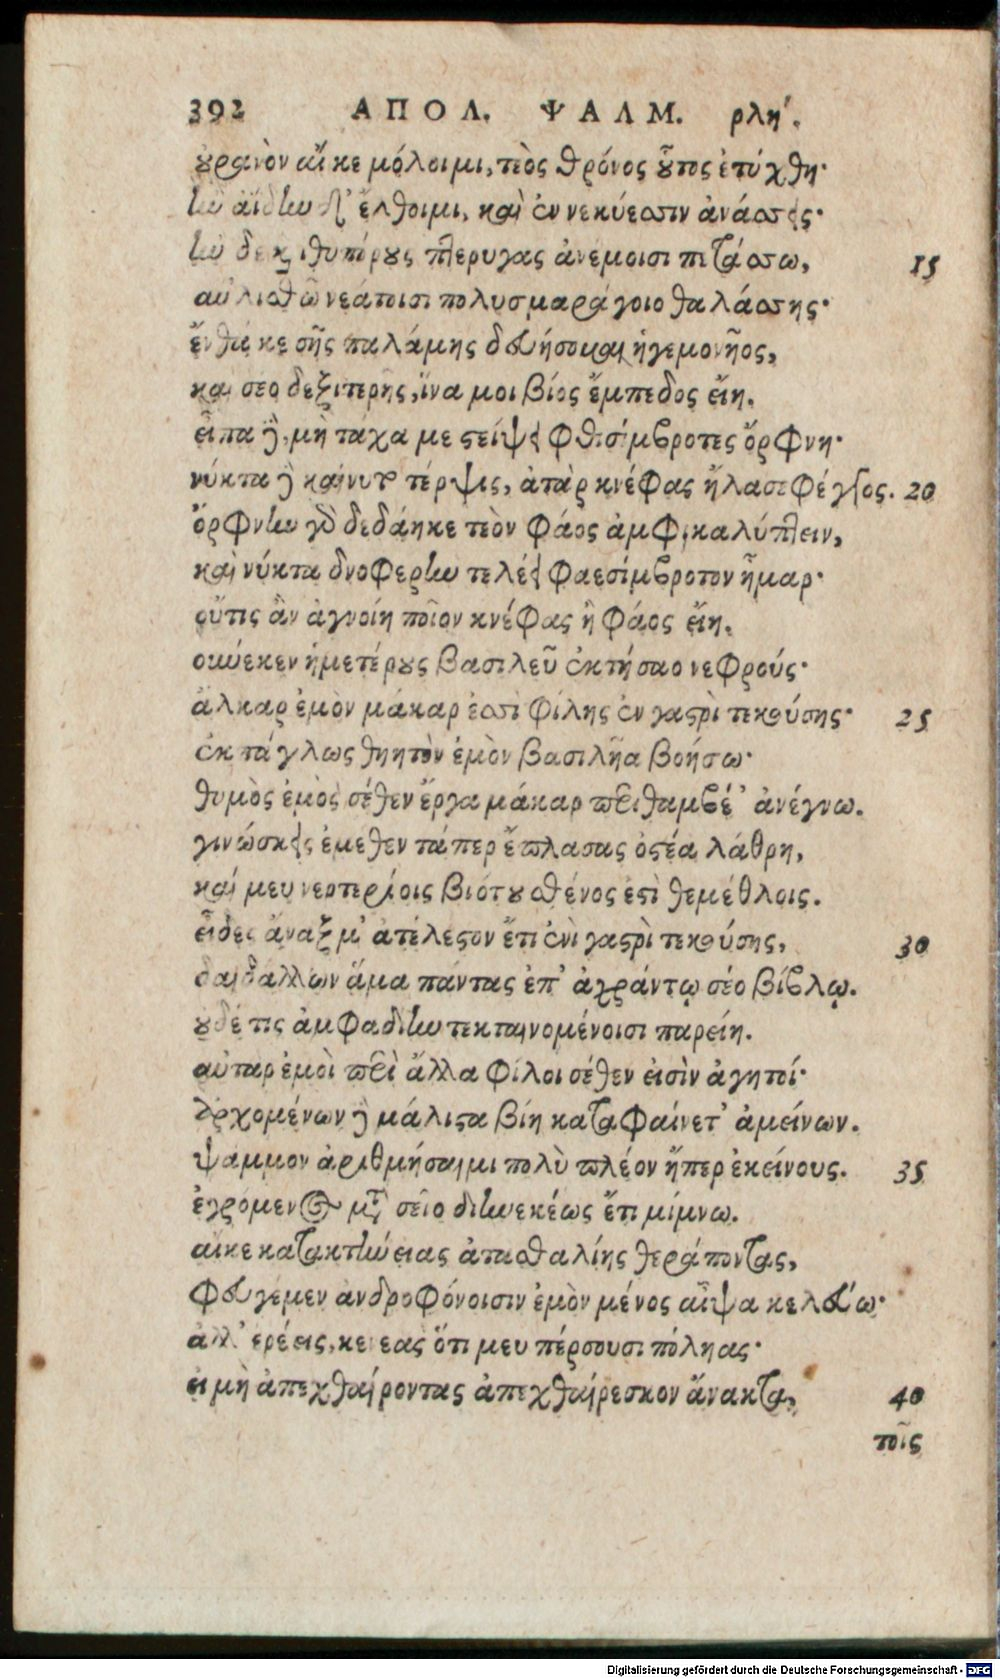 392 ΑΠΟΛ. ΨΑΛΜ. ρλή.
οὐρανὸν αἴ κε μόλοιμι, τεὸς θρόνος οὗτος ἐτύχθη·
ἢν ἀΐδην δ' ἔλθοιμι, καὶ ἐν νεκύεσσιν ἀνάσσεις·
ἢν δὲ καὶ ἰθυπόρους πτέρυγας ἀνέμοισι πετάσσω, 15
αὐλισθῶ νεάτοισι πολυσμαράγοιο θαλάσσης·
ἔνθά κε σῆς παλάμης δευήσομαι ἡγεμονῆος,
καὶ σεο δεξιτερῆς, ἵνα μοι βίος ἔμπεδος εἴη.
εἶπα δὲ, μὴ τάχα με στείψει φθισίμβροτες ὄρφνη·
νύκτα δὲ καίνυτο τέρψις, ἀτὰρ κνέφας ἤλασε φέγγος. 20
ὄρφνην γὰρ δεδάηκε τεὸν φάος ἀμφικαλύπτειν,
καὶ νύκτα δνοφερὴν τελέει φαεσίμβροτον ἦμαρ·
οὔτις ἂν ἀγνοίη ποῖον κνέφας ἢ φάος εἴη.
οὕνεκεν ἡμετέρους βασιλεῦ ἐκτήσαο νεφρούς·
ἄλκαρ ἐμὸν μάκαρ ἐσσὶ φίλης ἐν γαστρὶ τεκούσης· 25
ἐκπάγλως θηητὸν ἐμὸν βασιλῆα βοήσω·
θυμὸς ἐμὸς σέθεν ἔργα μάκαρ περιθαμβέ' ἀνέγνω.
γινώσκεις ἐμέθεν τάπερ ἔπλασας ὀστέα λάθρη,
καί μευ νερτερίοις βιότου σθένος ἐστὶ θεμέθλοις.
εἶδες ἄναξ μ' ἀτέλεστον ἔτι ἐνὶ γαστρὶ τεκούσης, 30
δαιδάλλων ἅμα πάντας ἐπ' ἀχράντῳ σέο βίβλῳ.
οὐδέ τις ἀμφαδίην τεκταινομένοισι παρείη.
αὐτὰρ ἐμοὶ περὶ ἄλλα φίλοι σέθεν εἰσὶν ἀγητοί·
ἀρχομένων δὲ μάλιστα βίη καταφαίνετ' ἀμείνων.
ψάμμον ἀριθμήσαιμι πολὺ πλέον ἤπερ ἐκείνους. 35
ἐγρόμενος μετὰ σεῖο διηνεκέως ἔτι μίμνω.
αἴκε κατακτήνειας ἀτασθαλίης θεράποντας,
φευγέμεν ἀνδροφόνοισιν ἐμὸν μένος αἶψα κελεύω·
ἀλλ' ἐρέεις, κενεὰς ὅτι μευ πέρσουσι πόληας·
εἰ μὴ ἀπεχθαίροντας ἀπεχθαίρεσκον ἄνακτα, 40
τοῖς
Digitalisierung gefördert durch die Deutsche Forschungsgemeinschaft - DFG